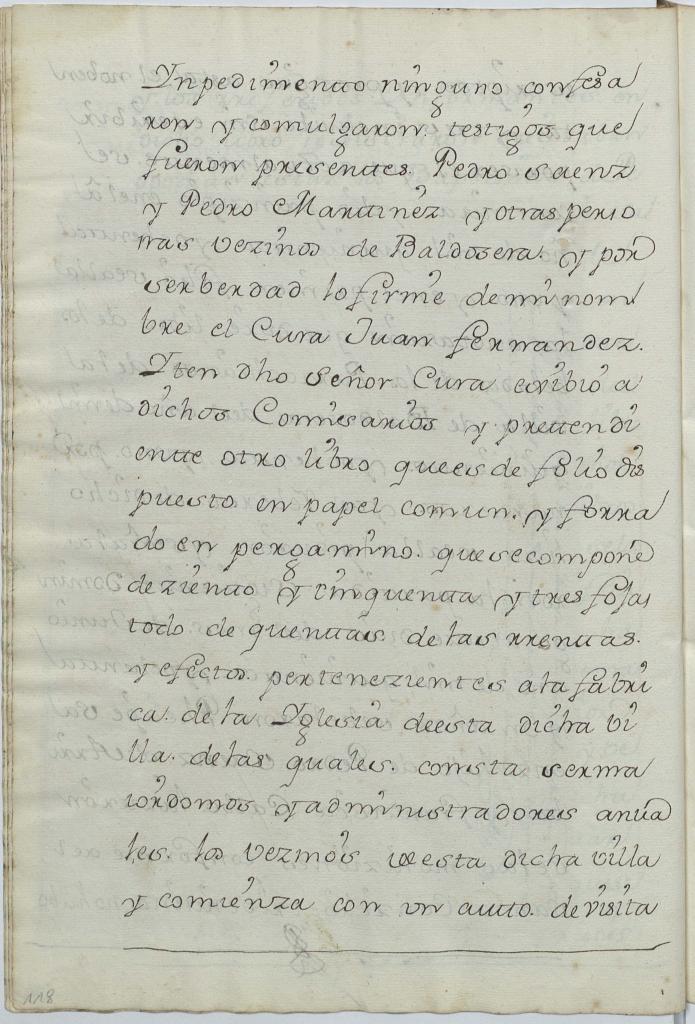 Ynpedimentto ninguno confesa
ron y comulgaron. testigos que
fueron presenttes. Pedro saenz
y Pedro Marttinez y otras perso
nas vezinos de Baldosera. y por
ser berdad lo firme de mi nom
bre el Cura Juan fernandez.
Yten dho señor Cura exsibio a
dichos Comisarios y prettendi
entte otro libro que es de folio dis
puesto en papel comun. y forra
do en pergamino. que se compone
de zientto y cinquentta y tres fojas
todo de quenttas. de las rrenttas.
y efectos. pertenezientes a la fabri
ca. de la Yglesia de esta dicha vi
lla. de las quales. consta ser ma
iordomos y administradores anua
les. los vezinos de esta dicha villa
y comienza con un autto. de visita
118